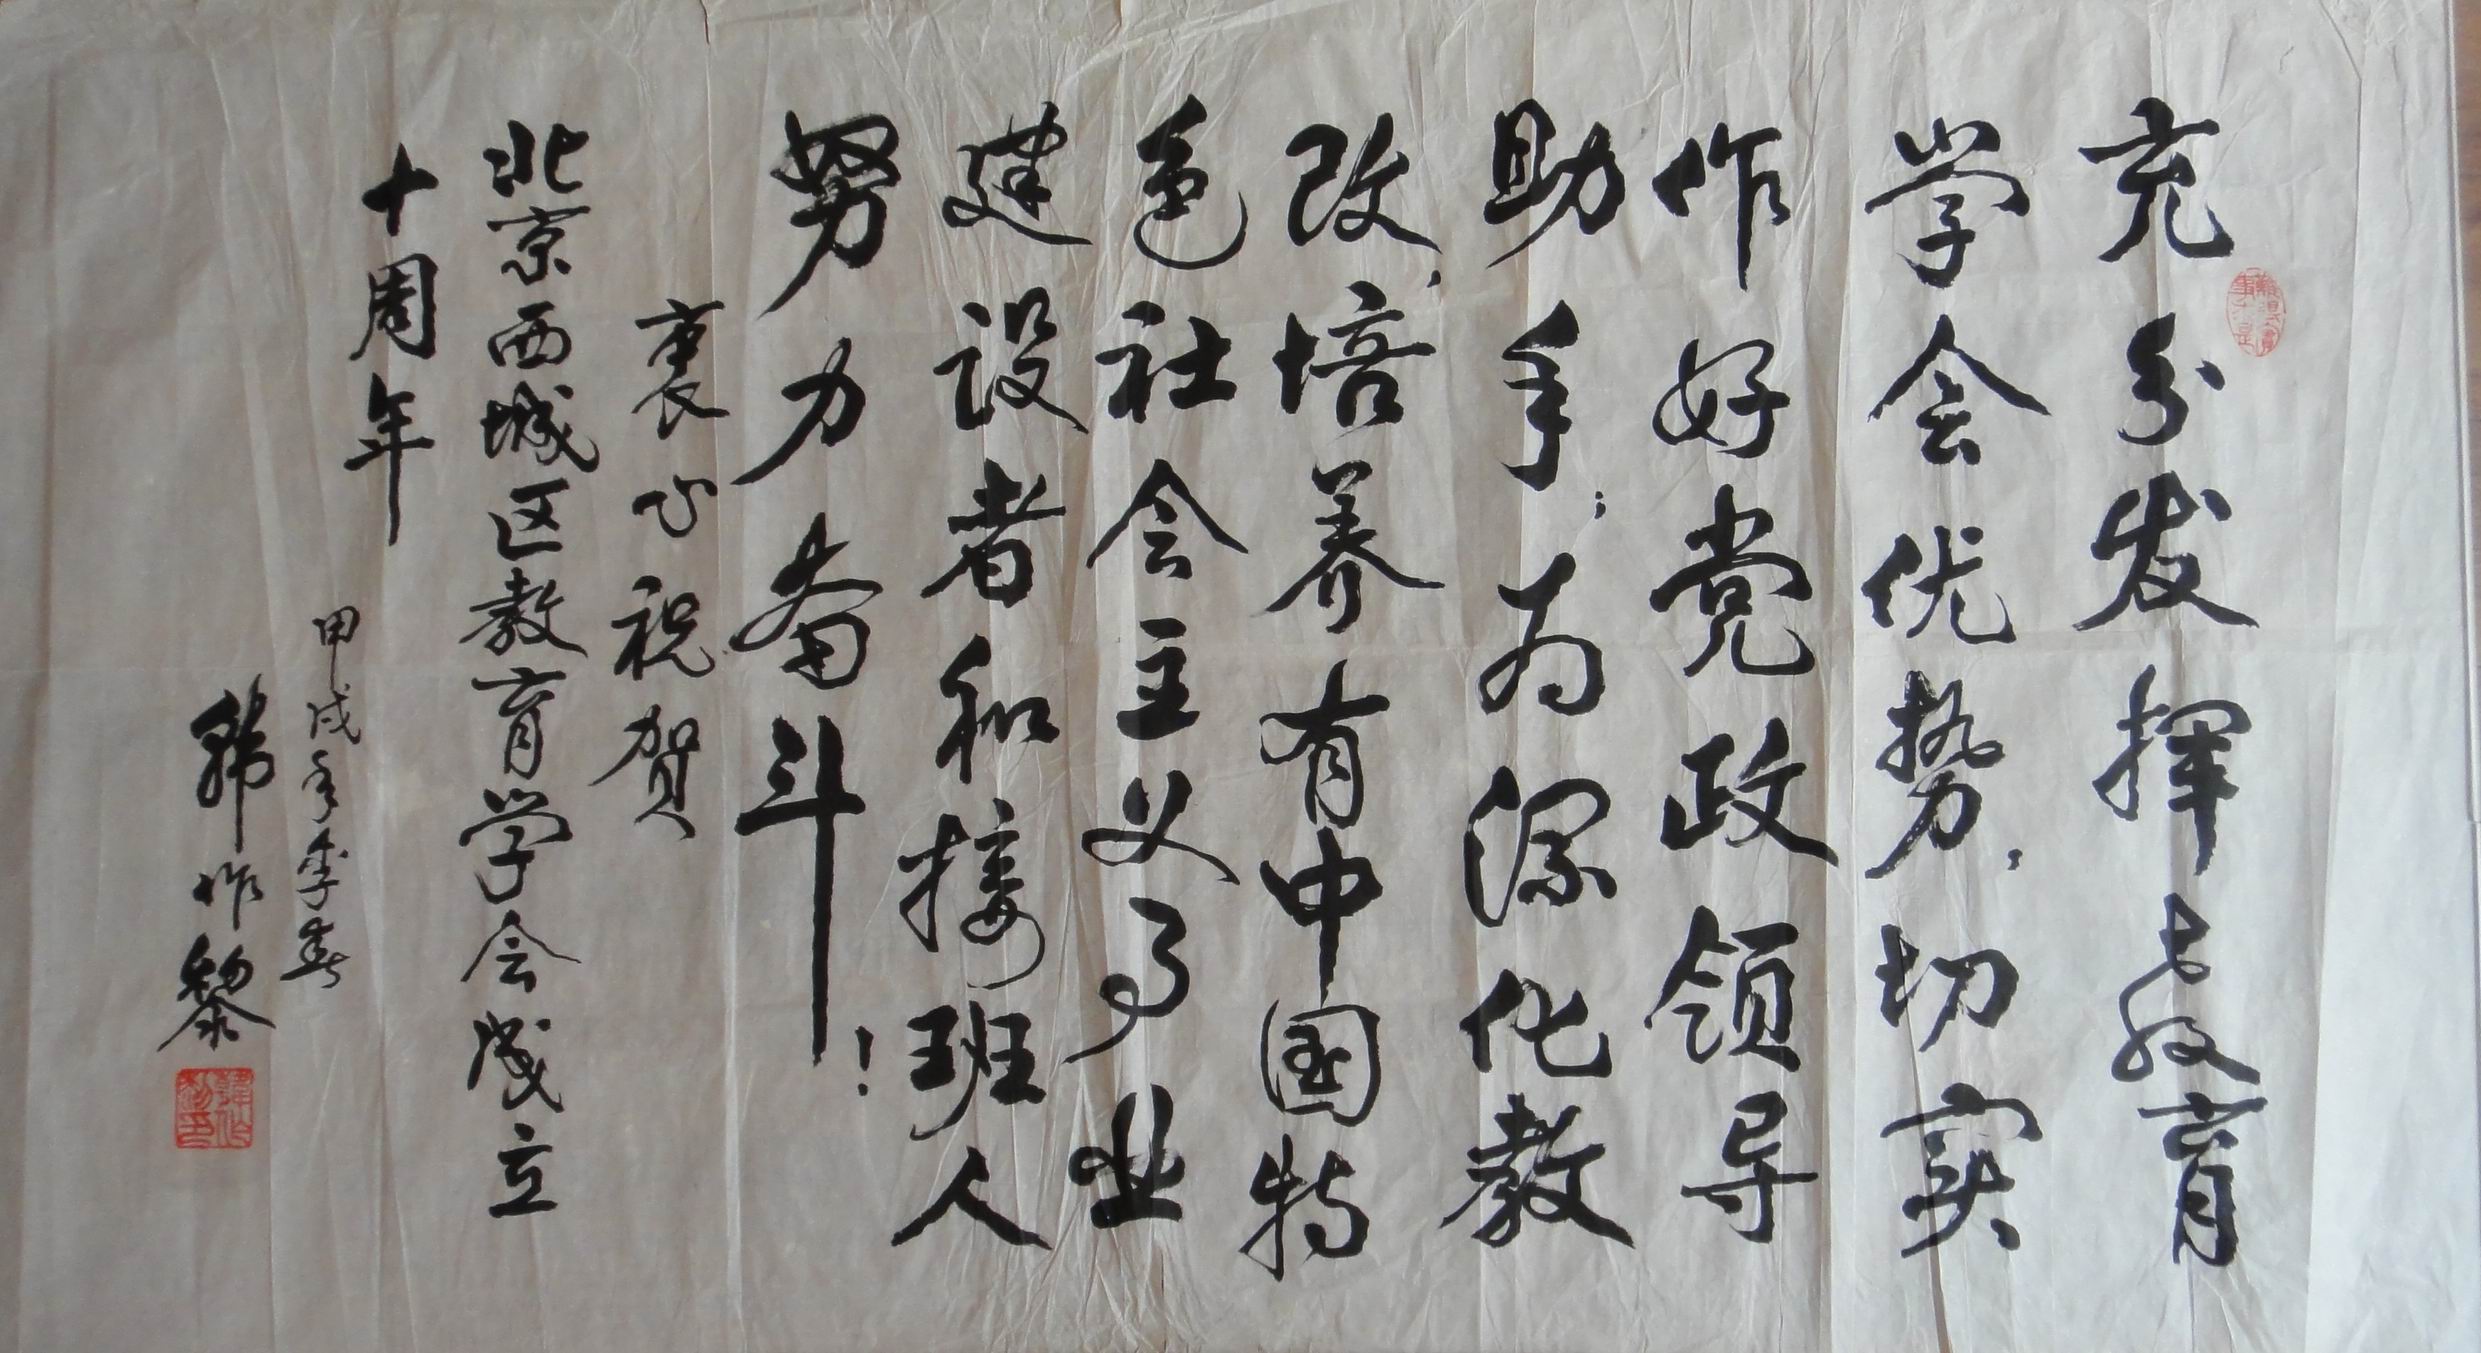 充分发挥教育
学会优势，切实
作好党政领导
助手；为深化教
改，培养有中国特
色社会主义事业
建设者和接班人
努力奋斗！
衷心祝贺
北京西城区教育学会成立
十周年
甲戌年季春
韩作黎
韩作黎印